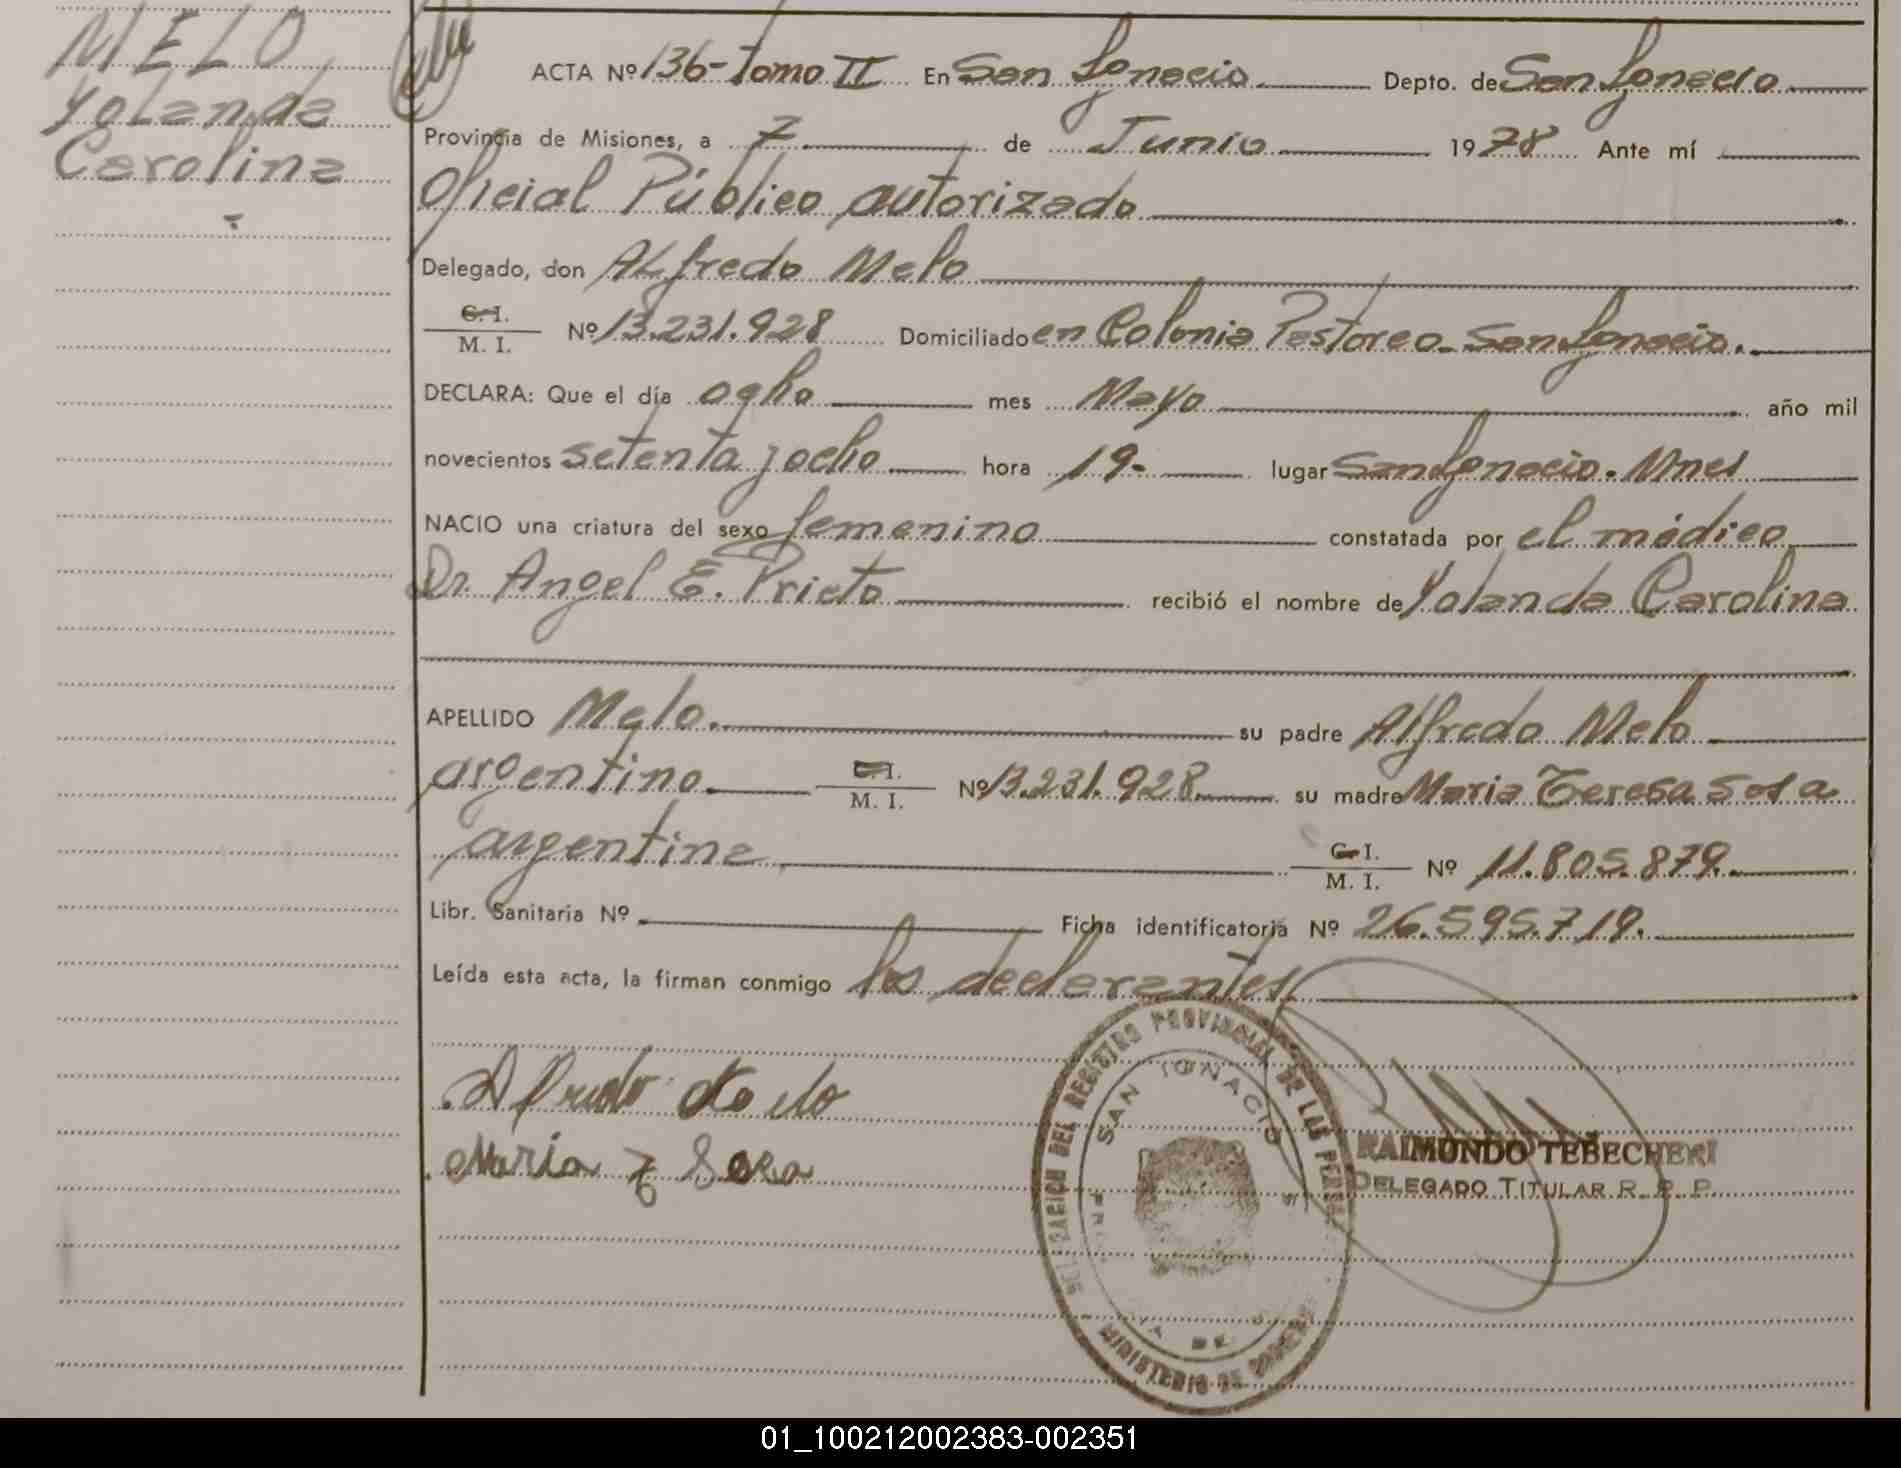 MELO
Yolanda
Carolina
ACTA Nº 136- Tomo II En San Ignacio Depto. de San Ignacio
Provincia de Misiones, a 7 de Junio 1978 Ante mí
Oficial Público autorizado
Delegado, don Alfredo Melo
C. I.
M. I. Nº 13.231.928 Domiciliado en Colonia Pastoreo - San Ignacio.
DECLARA: Que el día ocho mes Mayo año mil
novecientos setenta y ocho hora 19- lugar San Ignacio. Mnes
NACIO una criatura del sexo femenino constatada por el médico
Dr. Angel E. Prieto recibió el nombre de Yolanda Carolina
APELLIDO Melo. su padre Alfredo Melo
argentino C. I.
M. I. Nº 13.231.928. su madre Maria Teresa Sosa
argentina C. I.
M. I. Nº 11.805.879.
Libr. Sanitaria Nº Ficha identificatoria Nº 26.595.719.
Leída esta acta, la firman conmigo los declarantes
Alfredo Melo
Maria T Sosa
DEL REGISTRO PROVINCIAL DE LAS PERS
SAN IGNACIO
MINISTERIO DE GOBIERNO
RAIMONDO TEBECHERI
DELEGADO TITULAR R. P. P.
01_100212002383-002351